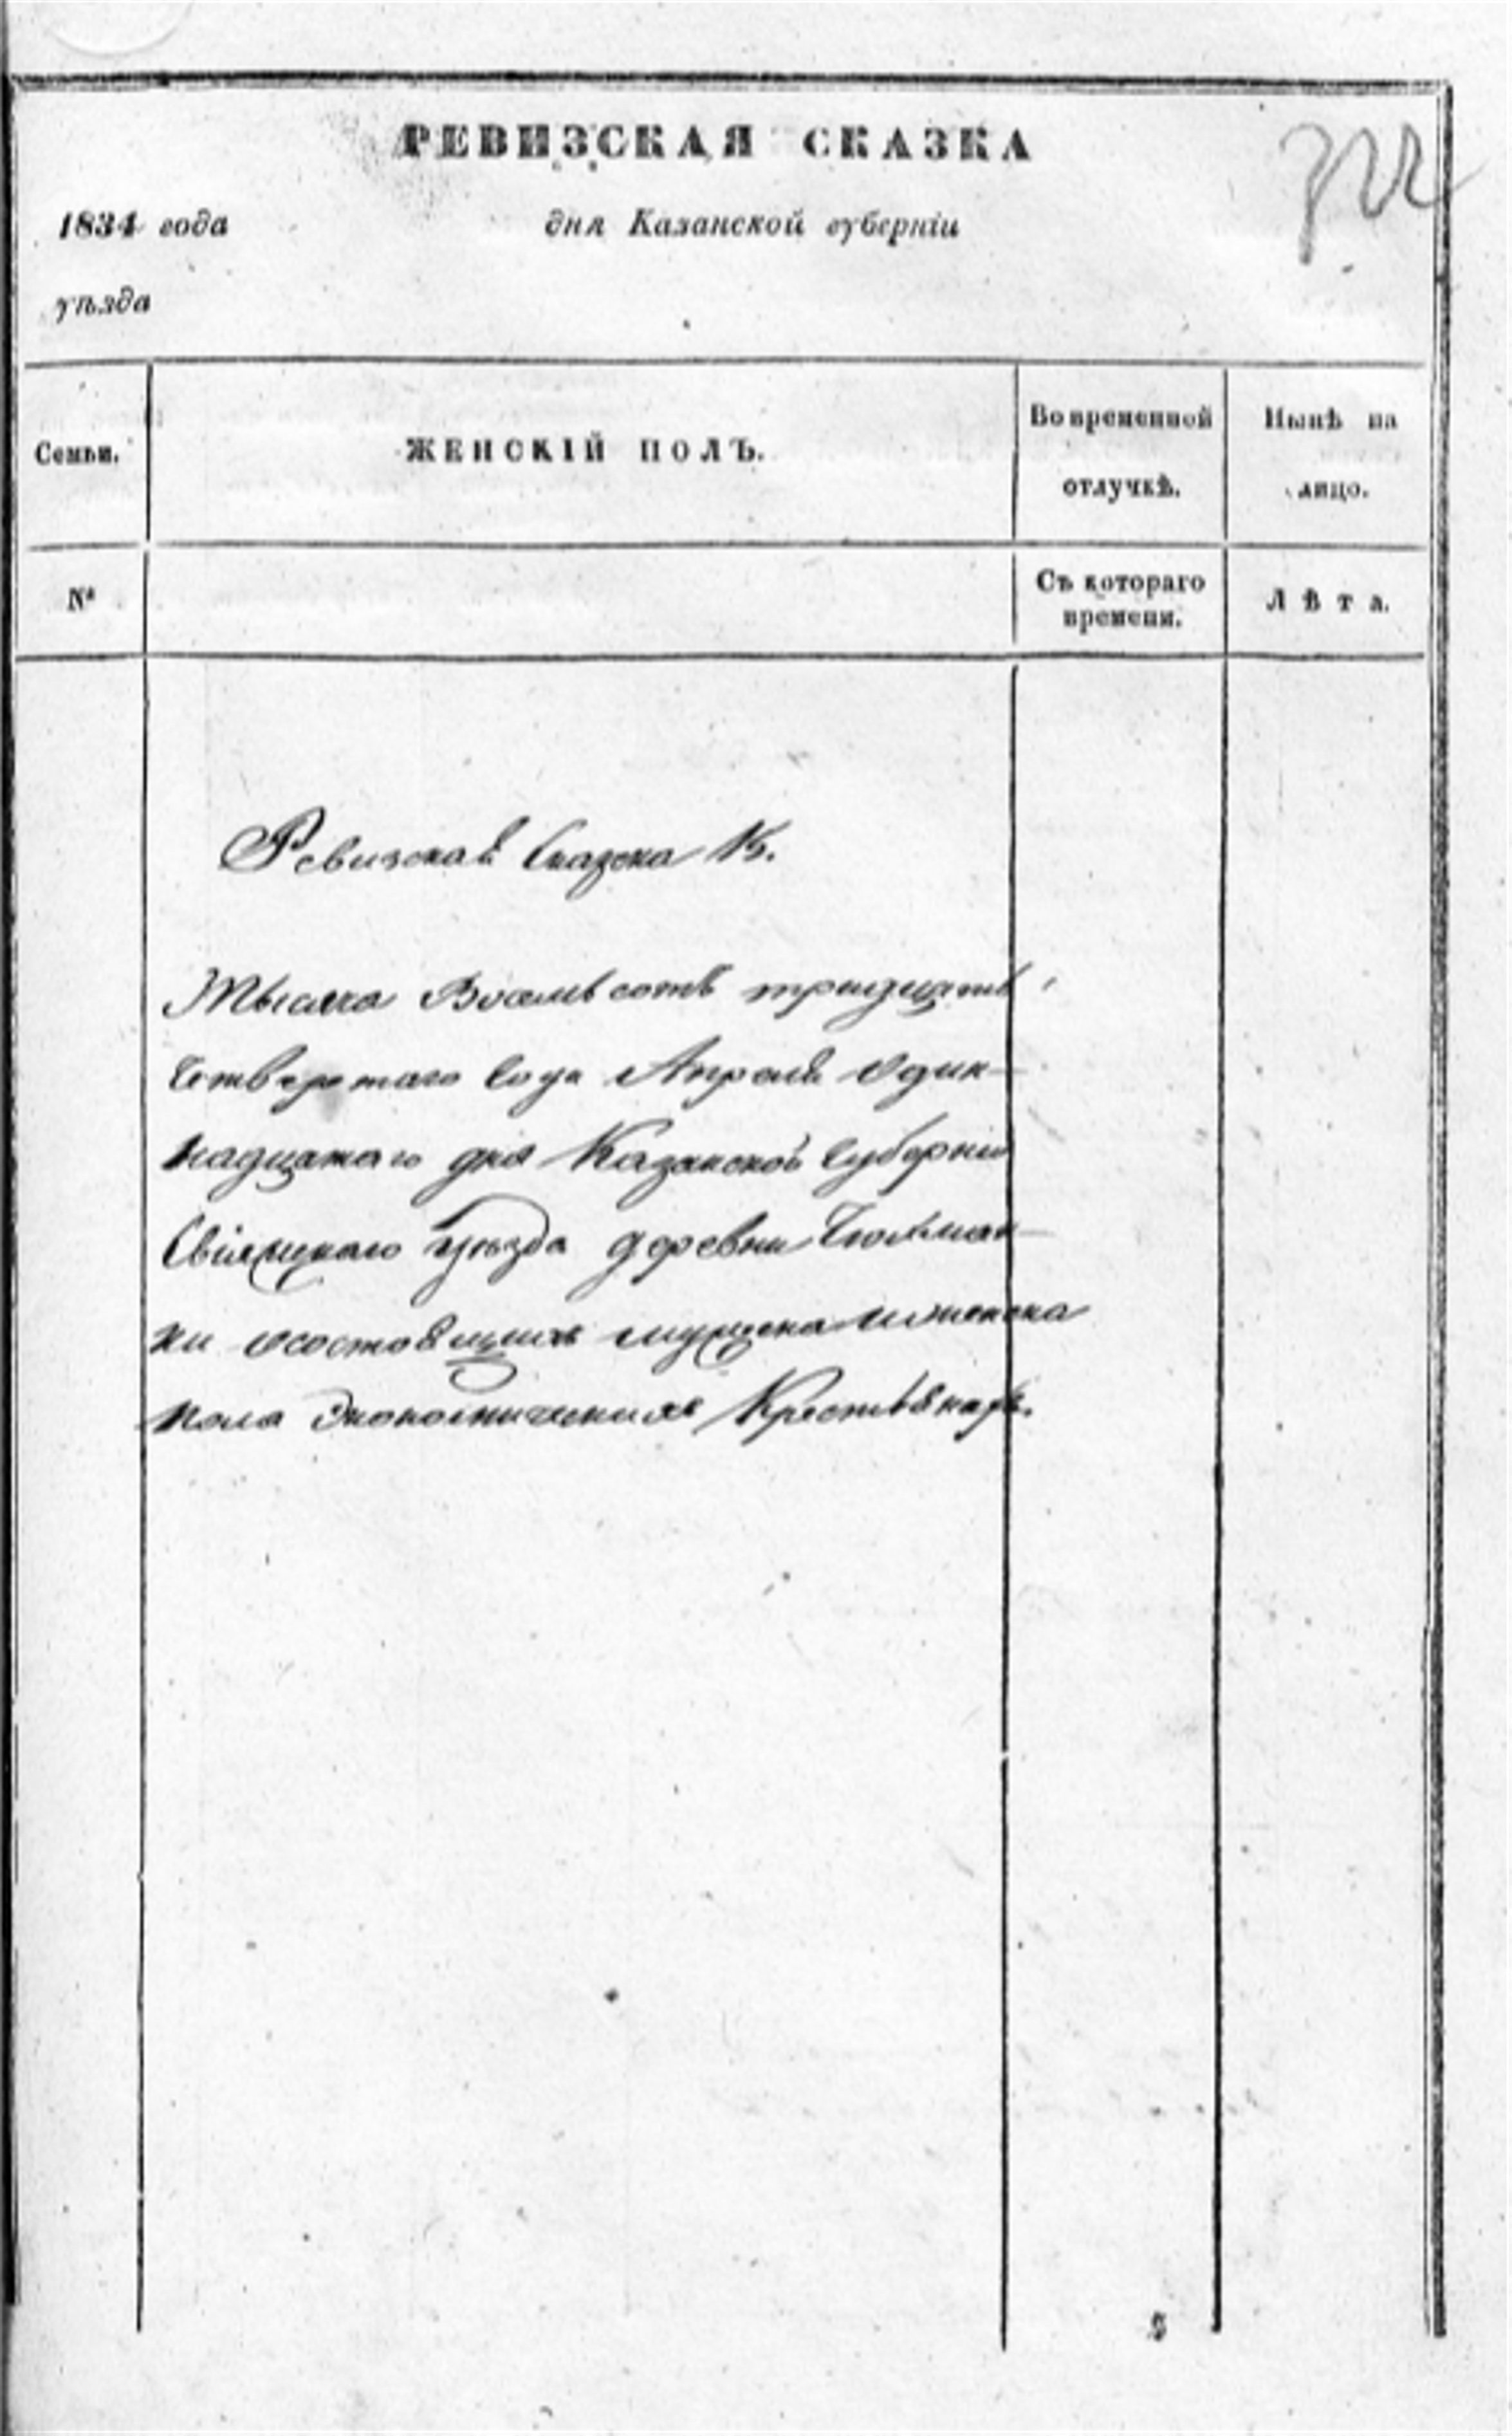 РЕВИЗСКАЯ СКАЗКА
1834 года дня Казанской губерніи
уѣзда
Семьи. ЖЕНСКІЙ ПОЛЪ. Во временной отлучкѣ. Нынѣ на лицо.
№ Съ котораго времени. Лѣта.
Ревизская Сказка
Тысяча Восемьсотъ тридцать
Четвертаго Года Апреля Один-
надцатаго дня Казанской Губерніи
Свіяжскаго уѣзда деревни
ки осостоящихъ мужеска иженска
пола Экономическихъ Крестьянахъ.
5